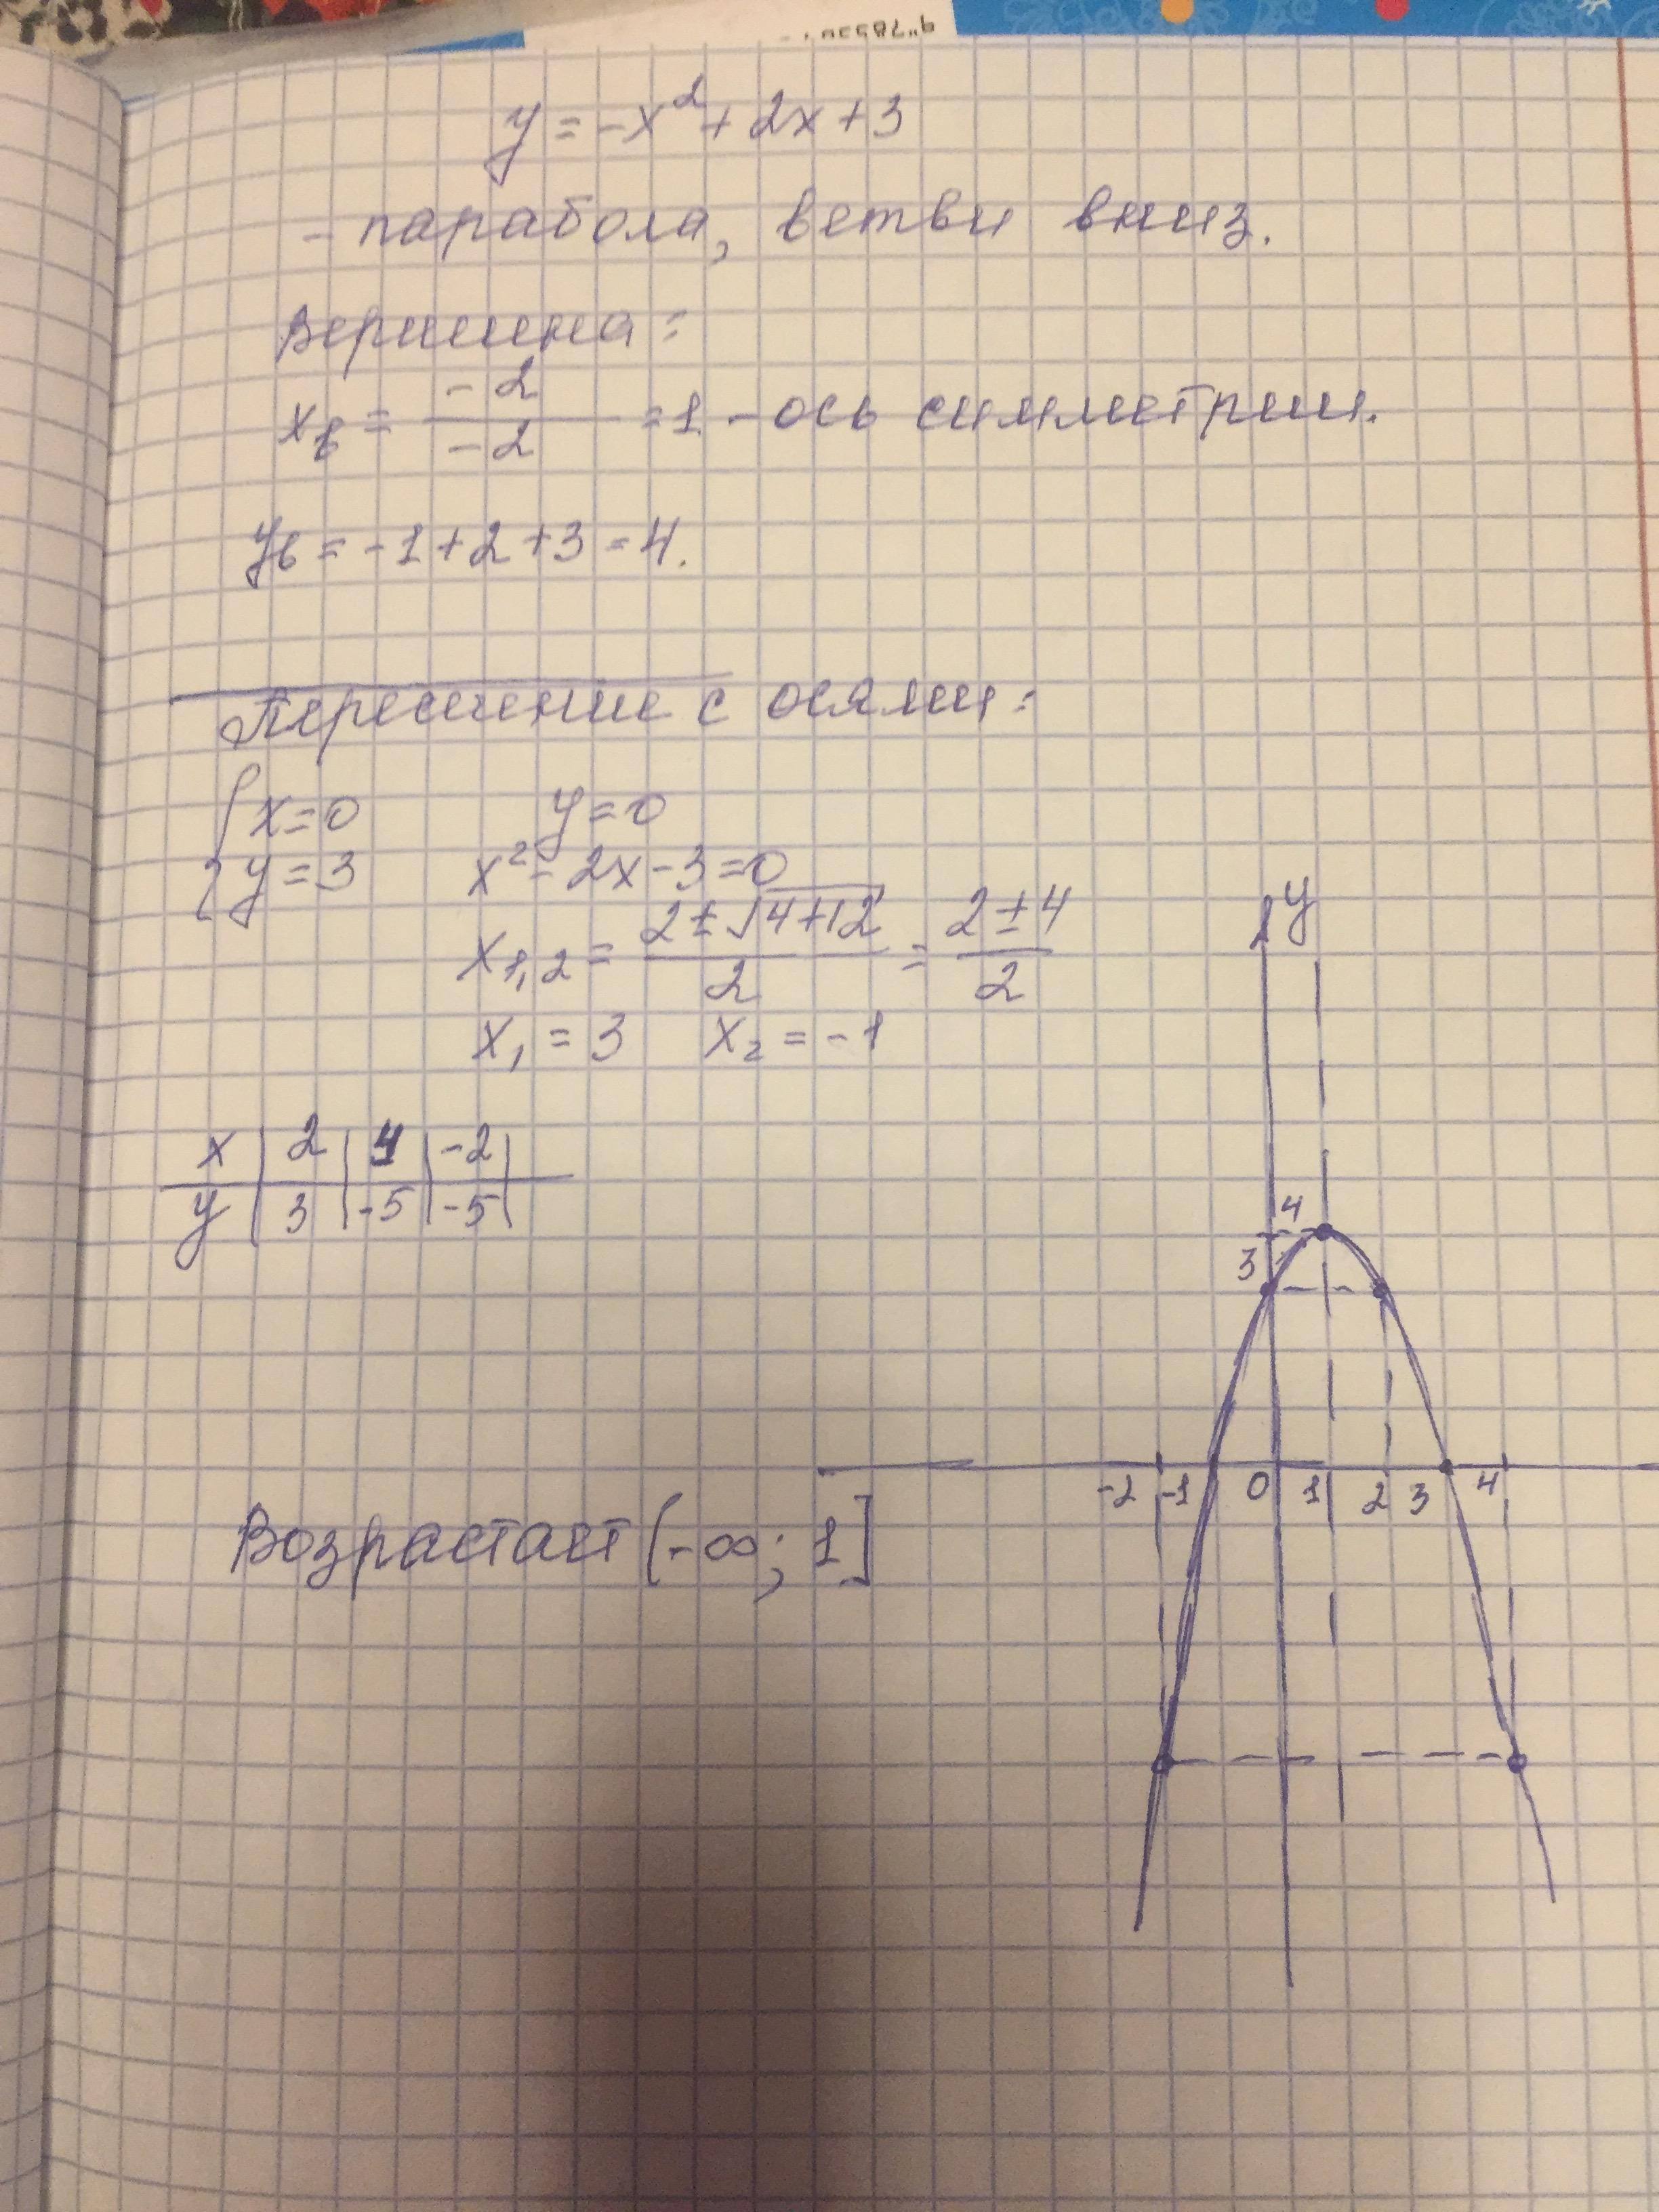 y = -x² + 2x + 3
- парабола, ветви вниз.
Вершина:
xв = -2 / -2 = 1 - ось симметрии.
yв = -1 + 2 + 3 = 4.
Пересечение с осями:
{ x = 0
y = 3
y = 0
x² - 2x - 3 = 0
x1,2 = (2 ± √(4 + 12)) / 2 = (2 ± 4) / 2
x1 = 3 x2 = -1
x | 2 | 4 | -2 |
y | 3 | -5 | -5 |
Возрастает (-∞; 1]
y
4
3
-2 -1 0 1 2 3 4